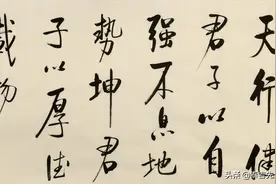 天行健
君子以自
强不息地
勢坤君
子以厚德
載物
头条